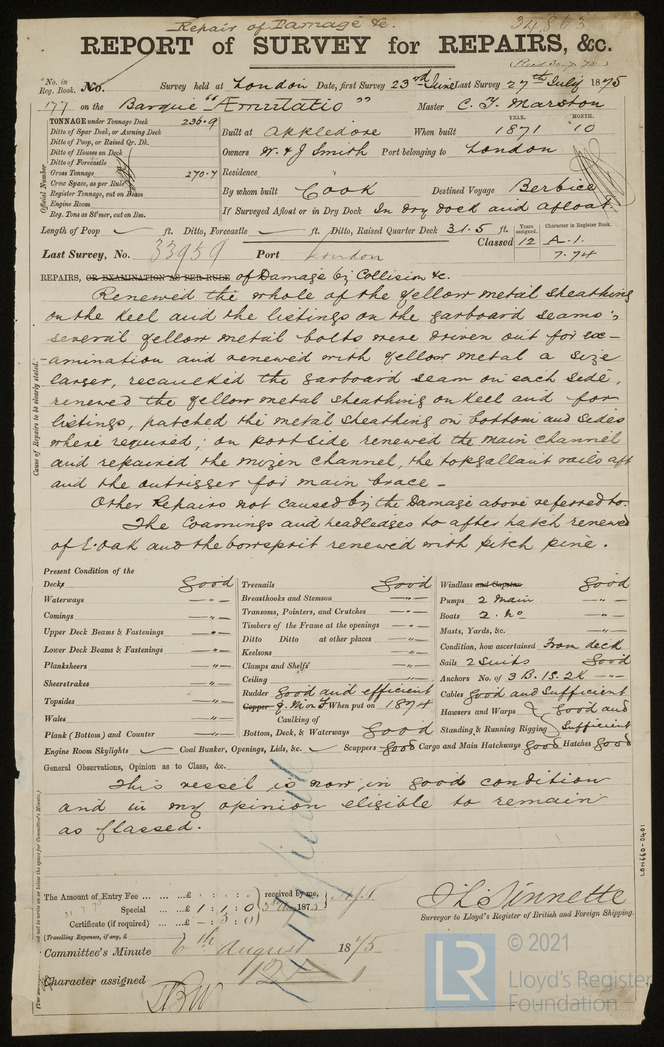 Repair of Damage &c. 34863
REPORT of SURVEY for REPAIRS, &c.
No. in Reg. Book. No. Survey held at London Date, first Survey 23rd June Last Survey 27th July 1875
177 on the Barque "Æmulatio" Master C. J. Marston
TONNAGE under Tonnage Deck 236.9
Ditto of Spar Deck, or Awning Deck
Ditto of Poop, or Raised Qr. Dk.
Ditto of Houses on Deck
Ditto of Forecastle
Gross Tonnage 270.7
Crew Space, as per Rule
Register Tonnage, cut on Beam
Engine Room
Reg. Tons as St'mer, cut on Bm.
Official Number
YEAR. MONTH.
Built at Appledore When built 1871 10
Owners W. & J Smith Port belonging to London
Residence
By whom built Cook Destined Voyage Berbice
If Surveyed Afloat or in Dry Dock In dry dock and afloat.
Length of Poop ft. Ditto, Forecastle ft. Ditto, Raised Quarter Deck 31.5 ft.
Years assigned. Character in Register Book.
Classed 12 A.1.
7.74
Last Survey, No. 33959 Port London
REPAIRS, OR EXAMINATION AS PER RULE of Damage by Collision &c.
Renewed the whole of the yellow metal sheathing
on the keel and the listings on the garboard seams;
several yellow metal bolts were driven out for ex-
amination and renewed with yellow metal a size
larger, recaulked the garboard seam on each side,
renewed the yellow metal sheathing on keel and for
listings, patched the metal sheathing on bottom and sides
where required; on port side renewed the main channel
and repaired the mizen channel, the topgallant rails aft
and the outrigger for main brace -
Other Repairs not caused by the Damage above referred to.
The Coamings and headledges to after hatch renewed
of E. oak and the bowsprit renewed with pitch pine.
Cause of Repairs to be clearly stated.
Present Condition of the
Decks Good
Waterways -"-
Comings -"-
Upper Deck Beams & Fastenings -"-
Lower Deck Beams & Fastenings -"-
Planksheers -"-
Sheerstrakes -"-
Topsides -"-
Wales -"-
Plank (Bottom) and Counter -"-
Treenails Good
Breasthooks and Stemson -"-
Transoms, Pointers, and Crutches -"-
Timbers of the Frame at the openings -"-
Ditto Ditto at other places -"-
Keelsons -"-
Clamps and Shelfs -"-
Ceiling -"-
Rudder Good and efficient
Copper Y. M on F When put on 1874
Caulking of
Bottom, Deck, & Waterways Good
Windlass and Capstan Good
Pumps 2 Main -"-
Boats 2. No -"-
Masts, Yards, &c. -"-
Condition, how ascertained From deck
Sails 2 Suits Good
Anchors No. of 3 B. 1S. 2K -"-
Cables Good and Sufficient
Hawsers and Warps Good and
Standing & Running Rigging Sufficient
Engine Room Skylights Coal Bunker, Openings, Lids, &c. Scuppers Good Cargo and Main Hatchways Good Hatches Good
General Observations, Opinion as to Class, &c.
This vessel is now in good condition
and in my opinion eligible to remain
as Classed.
The Amount of Entry Fee ... ... ...£ : :
Special ... ...£ 1 : 1 : 0
Certificate (if required) ... ...£ - : 5 : 0
received by me,
187
(Travelling Expenses, if any, £
Surveyor to Lloyd's Register of British and Foreign Shipping.
Committee's Minute 6th August 1875
Character assigned
LON660-0401
© 2021
LR
Lloyd's Register
Foundation